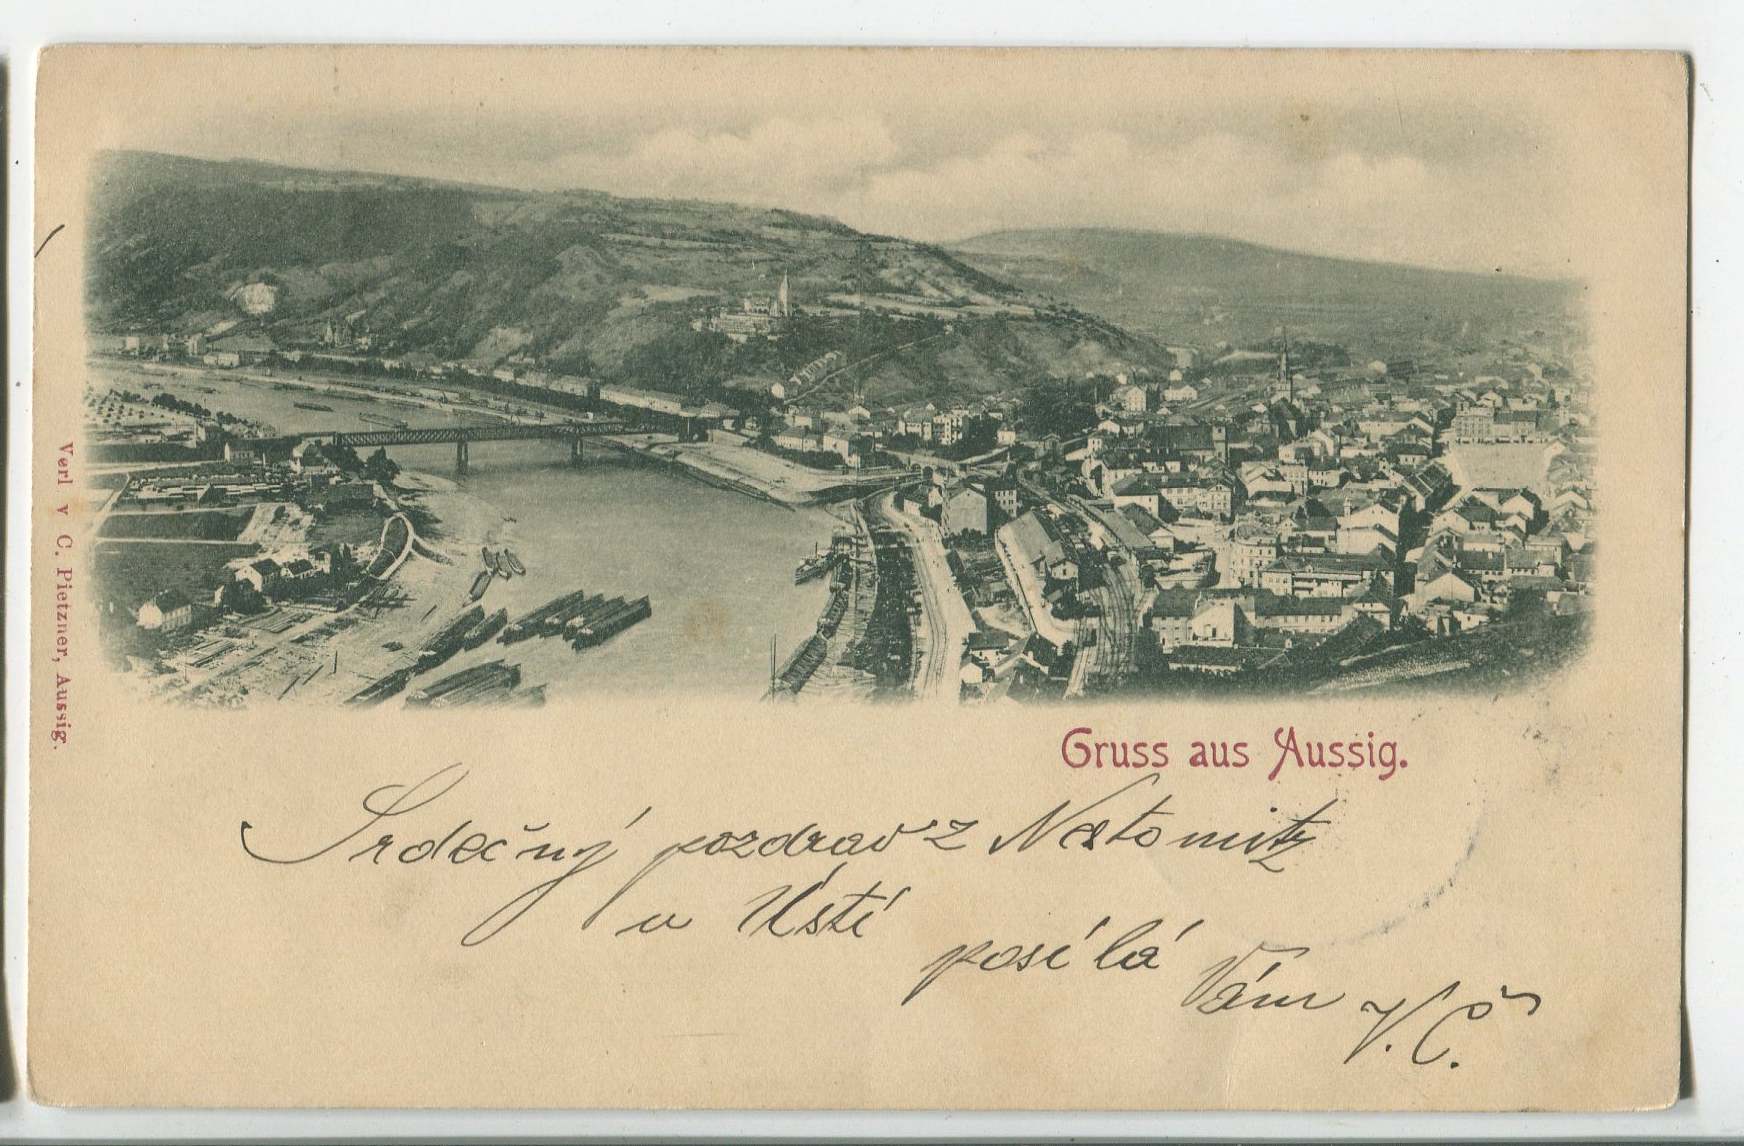 Gruss aus Aussig.
Srdečný pozdrav z Nestomitz
u Ústí
posílá
Vám V. Č.
Verl v C. Pietzner, Aussig.